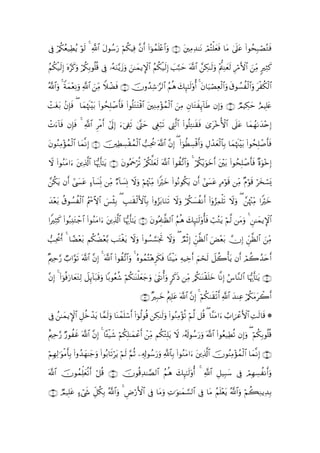 فَتُصْبِحُوا۟ عَلَىٰ مَا فَعَلْتُمْ نَٰدِمِينَ ﴿٦﴾ وَٱعْلَمُوٓا۟ أَنَّ فِيكُمْ رَسُولَ ٱللَّهِ ۚ لَوْ يُطِيعُكُمْ فِى
كَثِيرٍ مِّنَ ٱلْأَمْرِ لَعَنِتُّمْ وَلَٰكِنَّ ٱللَّهَ حَبَّبَ إِلَيْكُمُ ٱلْإِيمَٰنَ وَزَيَّنَهُۥ فِى قُلُوبِكُمْ وَكَرَّهَ إِلَيْكُمُ
ٱلْكُفْرَ وَٱلْفُسُوقَ وَٱلْعِصْيَانَ ۚ أُو۟لَٰٓئِكَ هُمُ ٱلرَّٰشِدُونَ ﴿٧﴾ فَضْلًا مِّنَ ٱللَّهِ وَنِعْمَةً ۚ وَٱللَّهُ
عَلِيمٌ حَكِيمٌ ﴿٨﴾ وَإِن طَآئِفَتَانِ مِنَ ٱلْمُؤْمِنِينَ ٱقْتَتَلُوا۟ فَأَصْلِحُوا۟ بَيْنَهُمَا ۖ فَإِنۢ بَغَتْ
إِحْدَىٰهُمَا عَلَى ٱلْأُخْرَىٰ فَقَٰتِلُوا۟ ٱلَّتِى تَبْغِى حَتَّىٰ تَفِىٓءَ إِلَىٰٓ أَمْرِ ٱللَّهِ ۚ فَإِن فَآءَتْ
فَأَصْلِحُوا۟ بَيْنَهُمَا بِٱلْعَدْلِ وَأَقْسِطُوٓا۟ ۖ إِنَّ ٱللَّهَ يُحِبُّ ٱلْمُقْسِطِينَ ﴿٩﴾ إِنَّمَا ٱلْمُؤْمِنُونَ
إِخْوَةٌ فَأَصْلِحُوا۟ بَيْنَ أَخَوَيْكُمْ ۚ وَٱتَّقُوا۟ ٱللَّهَ لَعَلَّكُمْ تُرْحَمُونَ ﴿١٠﴾ يَٰٓأَيُّهَا ٱلَّذِينَ ءَامَنُوا۟ لَا
يَسْخَرْ قَوْمٌ مِّن قَوْمٍ عَسَىٰٓ أَن يَكُونُوا۟ خَيْرًا مِّنْهُمْ وَلَا نِسَآءٌ مِّن نِّسَآءٍ عَسَىٰٓ أَن يَكُنَّ
خَيْرًا مِّنْهُنَّ ۖ وَلَا تَلْمِزُوٓا۟ أَنفُسَكُمْ وَلَا تَنَابَزُوا۟ بِٱلْأَلْقَٰبِ ۖ بِئْسَ ٱلِٱسْمُ ٱلْفُسُوقُ بَعْدَ
ٱلْإِيمَٰنِ ۚ وَمَن لَّمْ يَتُبْ فَأُو۟لَٰٓئِكَ هُمُ ٱلظَّٰلِمُونَ ﴿١١﴾ يَٰٓأَيُّهَا ٱلَّذِينَ ءَامَنُوا۟ ٱجْتَنِبُوا۟ كَثِيرًا
مِّنَ ٱلظَّنِّ إِنَّ بَعْضَ ٱلظَّنِّ إِثْمٌ ۖ وَلَا تَجَسَّسُوا۟ وَلَا يَغْتَب بَّعْضُكُم بَعْضًا ۚ أَيُحِبُّ
أَحَدُكُمْ أَن يَأْكُلَ لَحْمَ أَخِيهِ مَيْتًا فَكَرِهْتُمُوهُ ۚ وَٱتَّقُوا۟ ٱللَّهَ ۚ إِنَّ ٱللَّهَ تَوَّابٌ رَّحِيمٌ
﴿١٢﴾ يَٰٓأَيُّهَا ٱلنَّاسُ إِنَّا خَلَقْنَٰكُم مِّن ذَكَرٍ وَأُنثَىٰ وَجَعَلْنَٰكُمْ شُعُوبًا وَقَبَآئِلَ لِتَعَارَفُوٓا۟ ۚ إِنَّ
أَكْرَمَكُمْ عِندَ ٱللَّهِ أَتْقَىٰكُمْ ۚ إِنَّ ٱللَّهَ عَلِيمٌ خَبِيرٌ ﴿١٣﴾
۞ قَالَتِ ٱلْأَعْرَابُ ءَامَنَّا ۖ قُل لَّمْ تُؤْمِنُوا۟ وَلَٰكِن قُولُوٓا۟ أَسْلَمْنَا وَلَمَّا يَدْخُلِ ٱلْإِيمَٰنُ فِى
قُلُوبِكُمْ ۖ وَإِن تُطِيعُوا۟ ٱللَّهَ وَرَسُولَهُۥ لَا يَلِتْكُم مِّنْ أَعْمَٰلِكُمْ شَيْـًٔا ۚ إِنَّ ٱللَّهَ غَفُورٌ رَّحِيمٌ
﴿١٤﴾ إِنَّمَا ٱلْمُؤْمِنُونَ ٱلَّذِينَ ءَامَنُوا۟ بِٱللَّهِ وَرَسُولِهِۦ ثُمَّ لَمْ يَرْتَابُوا۟ وَجَٰهَدُوا۟ بِأَمْوَٰلِهِمْ
وَأَنفُسِهِمْ فِى سَبِيلِ ٱللَّهِ ۚ أُو۟لَٰٓئِكَ هُمُ ٱلصَّٰدِقُونَ ﴿١٥﴾ قُلْ أَتُعَلِّمُونَ ٱللَّهَ
بِدِينِكُمْ وَٱللَّهُ يَعْلَمُ مَا فِى ٱلسَّمَٰوَٰتِ وَمَا فِى ٱلْأَرْضِ ۚ وَٱللَّهُ بِكُلِّ شَىْءٍ عَلِيمٌ ﴿١٦﴾